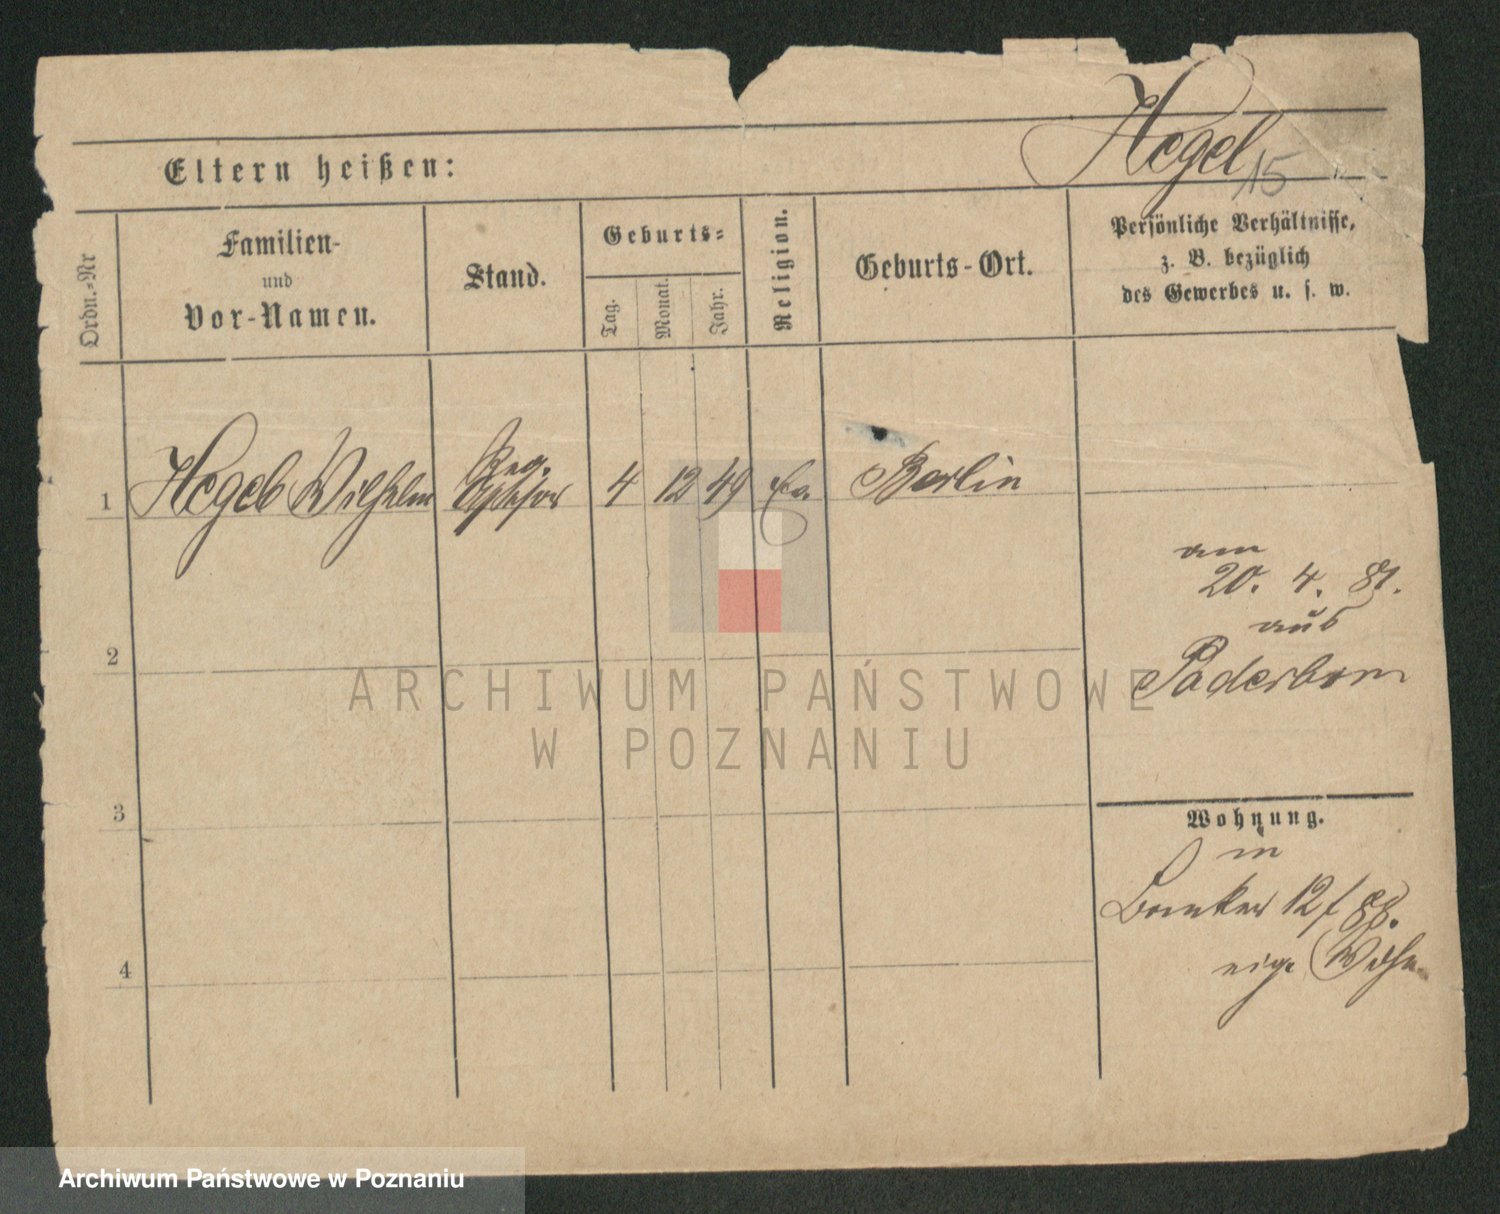 Hegel
15
Eltern heißen:
Ordn.-Nr
Familien-
und
Vor-Namen.
Stand.
Geburts-
Tag.
Monat.
Jahr.
Religion.
Geburts-Ort.
Persönliche Verhältnisse,
z. B. bezüglich
des Gewerbes u. s. w.
1 Hegel Wilhelm Reg. Assessor 4 12 49 Ev. Berlin
am
20. 4. 81.
aus
Paderborn
2
3
4
Wohnung.
in
12/
eig.
ARCHIWUM PAŃSTWOWE
W POZNANIU
Archiwum Państwowe w Poznaniu